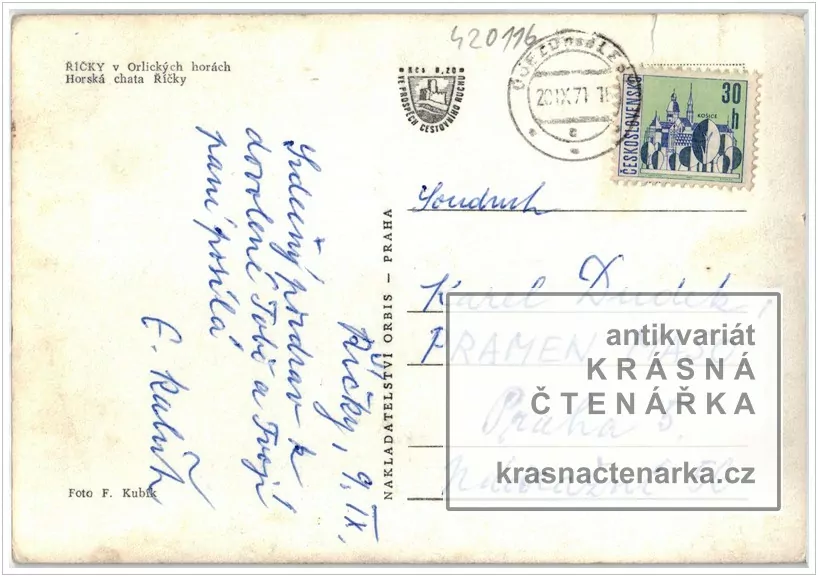 420116
ŘÍČKY v Orlických horách
Horská chata Říčky
Kčs 0,20
VE PROSPĚCH CESTOVNÍHO RUCHU
20.IX.71
30
h
KOŠICE
ČESKOSLOVENSKO
Říčky, 9.IX.
Srdečný pozdrav z
dovolené Tobě a Tvojí
paní posílá
NAKLADATELSTVÍ ORBIS — PRAHA
Soudruh
Karel Dudek,
PRAMEN MASO
Praha 5.
50
antikvariát
KRÁSNÁ
ČTENÁŘKA
krasnactenarka.cz
Foto F. Kubík